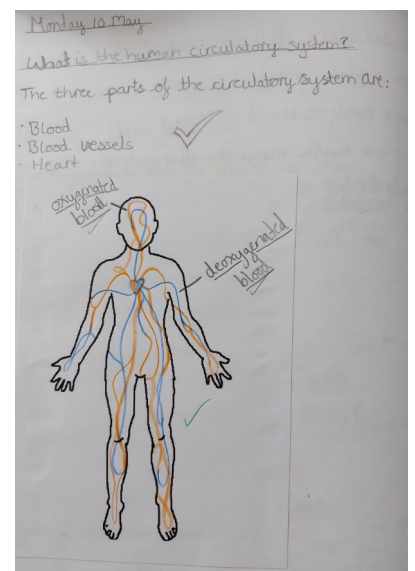 Monday 10 May
What is the human circulatory system?
The three parts of the circulatory system are:
· Blood
· Blood vessels
· Heart
oxygenated
blood
deoxygenated
blood